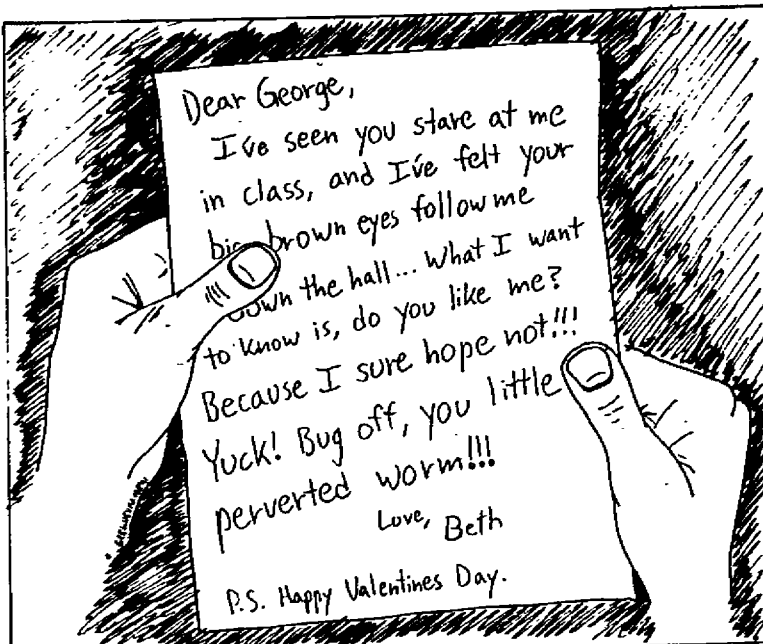 Dear George,
I've seen you stare at me
in class, and I've felt your
big brown eyes follow me
down the hall... What I want
to know is, do you like me?
Because I sure hope not!!!
Yuck! Bug off, you little
perverted worm!!!
Love, Beth
P.S. Happy Valentines Day.